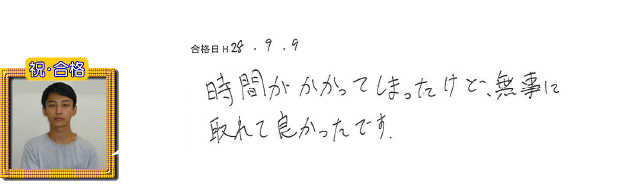 祝・合格
合格日 H 28 . 9 . 9
時間がかかってしまったけど、無事に
取れて良かったです.